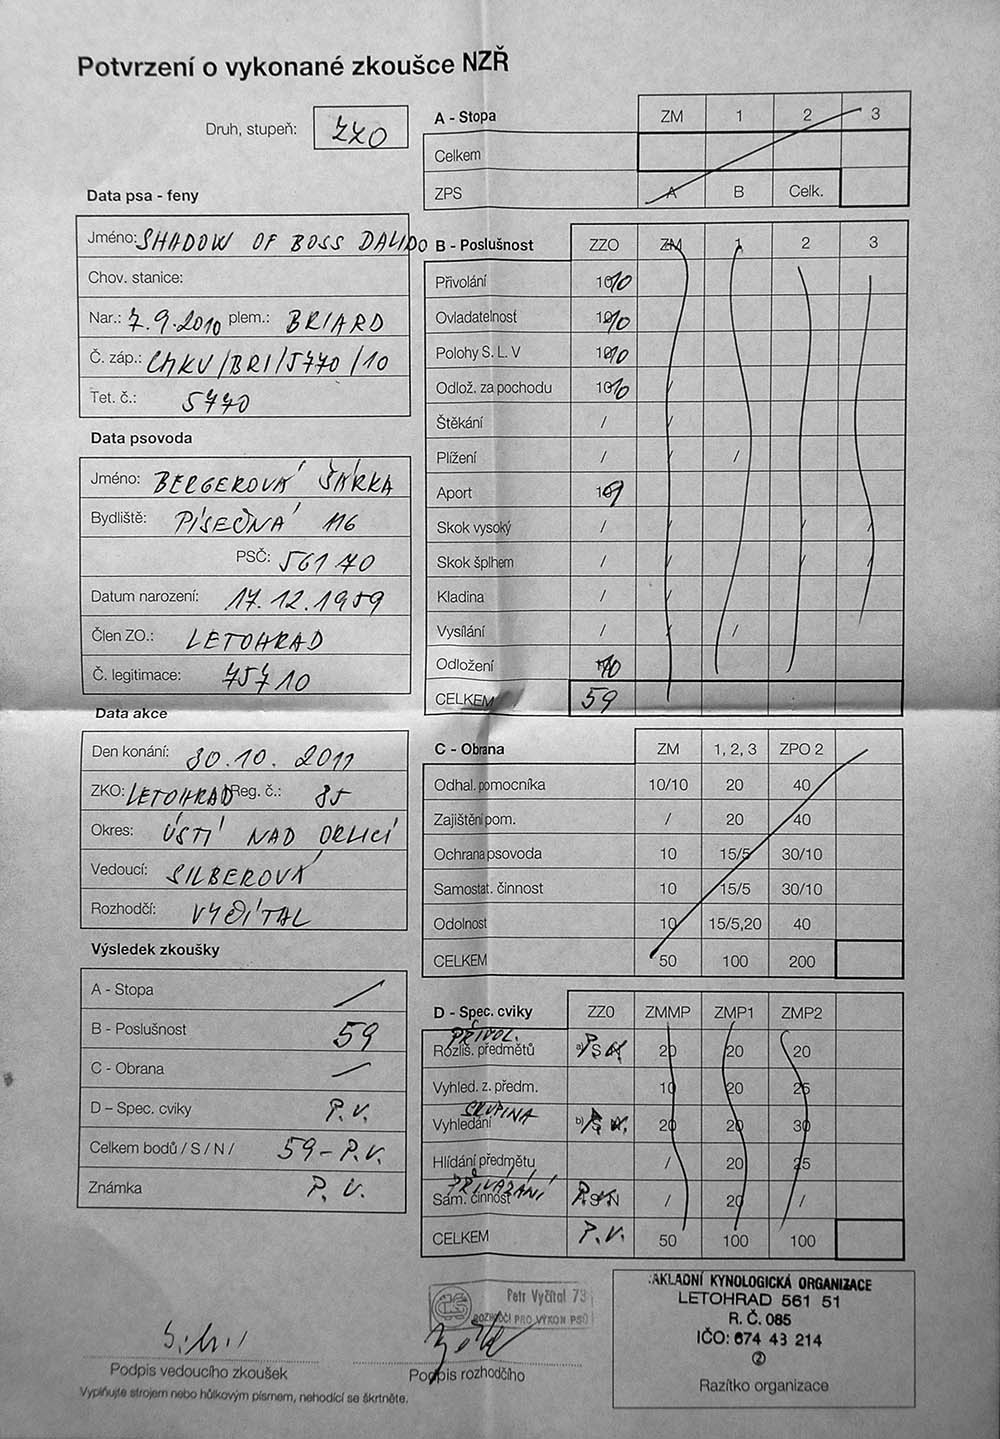 Potvrzení o vykonané zkoušce NZŘ
Druh, stupeň: ZZO
Data psa - feny
Jméno: SHADOW OF BOSS DALIDO
Chov. stanice:
Nar.: 7.9.2010 plem.: BRIARD
Č. záp.: CMKU/BRI/5770/10
Tet. č.: 5770
Data psovoda
Jméno: BERGEROVÁ ŠÁRKA
Bydliště: PÍSEČNÁ 116
PSČ: 561 70
Datum narození: 17.12.1959
Člen ZO.: LETOHRAD
Č. legitimace: 75710
Data akce
Den konání: 30.10.2011
ZKO: LETOHRAD Reg. č.: 85
Okres: ÚSTÍ NAD ORLICÍ
Vedoucí: SILBEROVÁ
Rozhodčí: VYČÍTAL
Výsledek zkoušky
A - Stopa /
B - Poslušnost 59
C - Obrana /
D - Spec. cviky P.V.
Celkem bodů / S / N / 59 - P.V.
Známka P.V.
A - Stopa ZM 1 2 3
Celkem
ZPS A B Celk.
B - Poslušnost ZZO ZM 1 2 3
Přivolání 10 10
Ovladatelnost 10 10
Polohy S. L. V 10 10
Odlož. za pochodu 10 10
Štěkání / /
Plížení / / /
Aport 10 9
Skok vysoký / / / /
Skok šplhem / / / /
Kladina / /
Vysílání / / /
Odložení 10 10
CELKEM 59
C - Obrana ZM 1, 2, 3 ZPO 2
Odhal. pomocníka 10/10 20 40
Zajištění pom. / 20 40
Ochrana psovoda 10 15/5 30/10
Samostat. činnost 10 15/5 30/10
Odolnost 10 15/5,20 40
CELKEM 50 100 200
D - Spec. cviky ZZ0 ZMMP ZMP1 ZMP2
PŘIVOL.
Rozliš. předmětů a) P S N 20 20 20
Vyhled. z. předm. 10 20 25
SKUPINA
Vyhledání b) P S N 20 20 30
Hlídání předmětu / 20 25
PŘIVÁZÁNÍ
Sam. činnost P S N / 20 /
CELKEM P.V. 50 100 100
Petr Vyčítal 73
ROZHODČÍ PRO VÝKON PSŮ
Podpis vedoucího zkoušek
Podpis rozhodčího
Vyplňujte strojem nebo hůlkovým písmem, nehodící se škrtněte.
ZÁKLADNÍ KYNOLOGICKÁ ORGANIZACE
LETOHRAD 561 51
R. Č. 085
IČO: 674 43 214
②
Razítko organizace